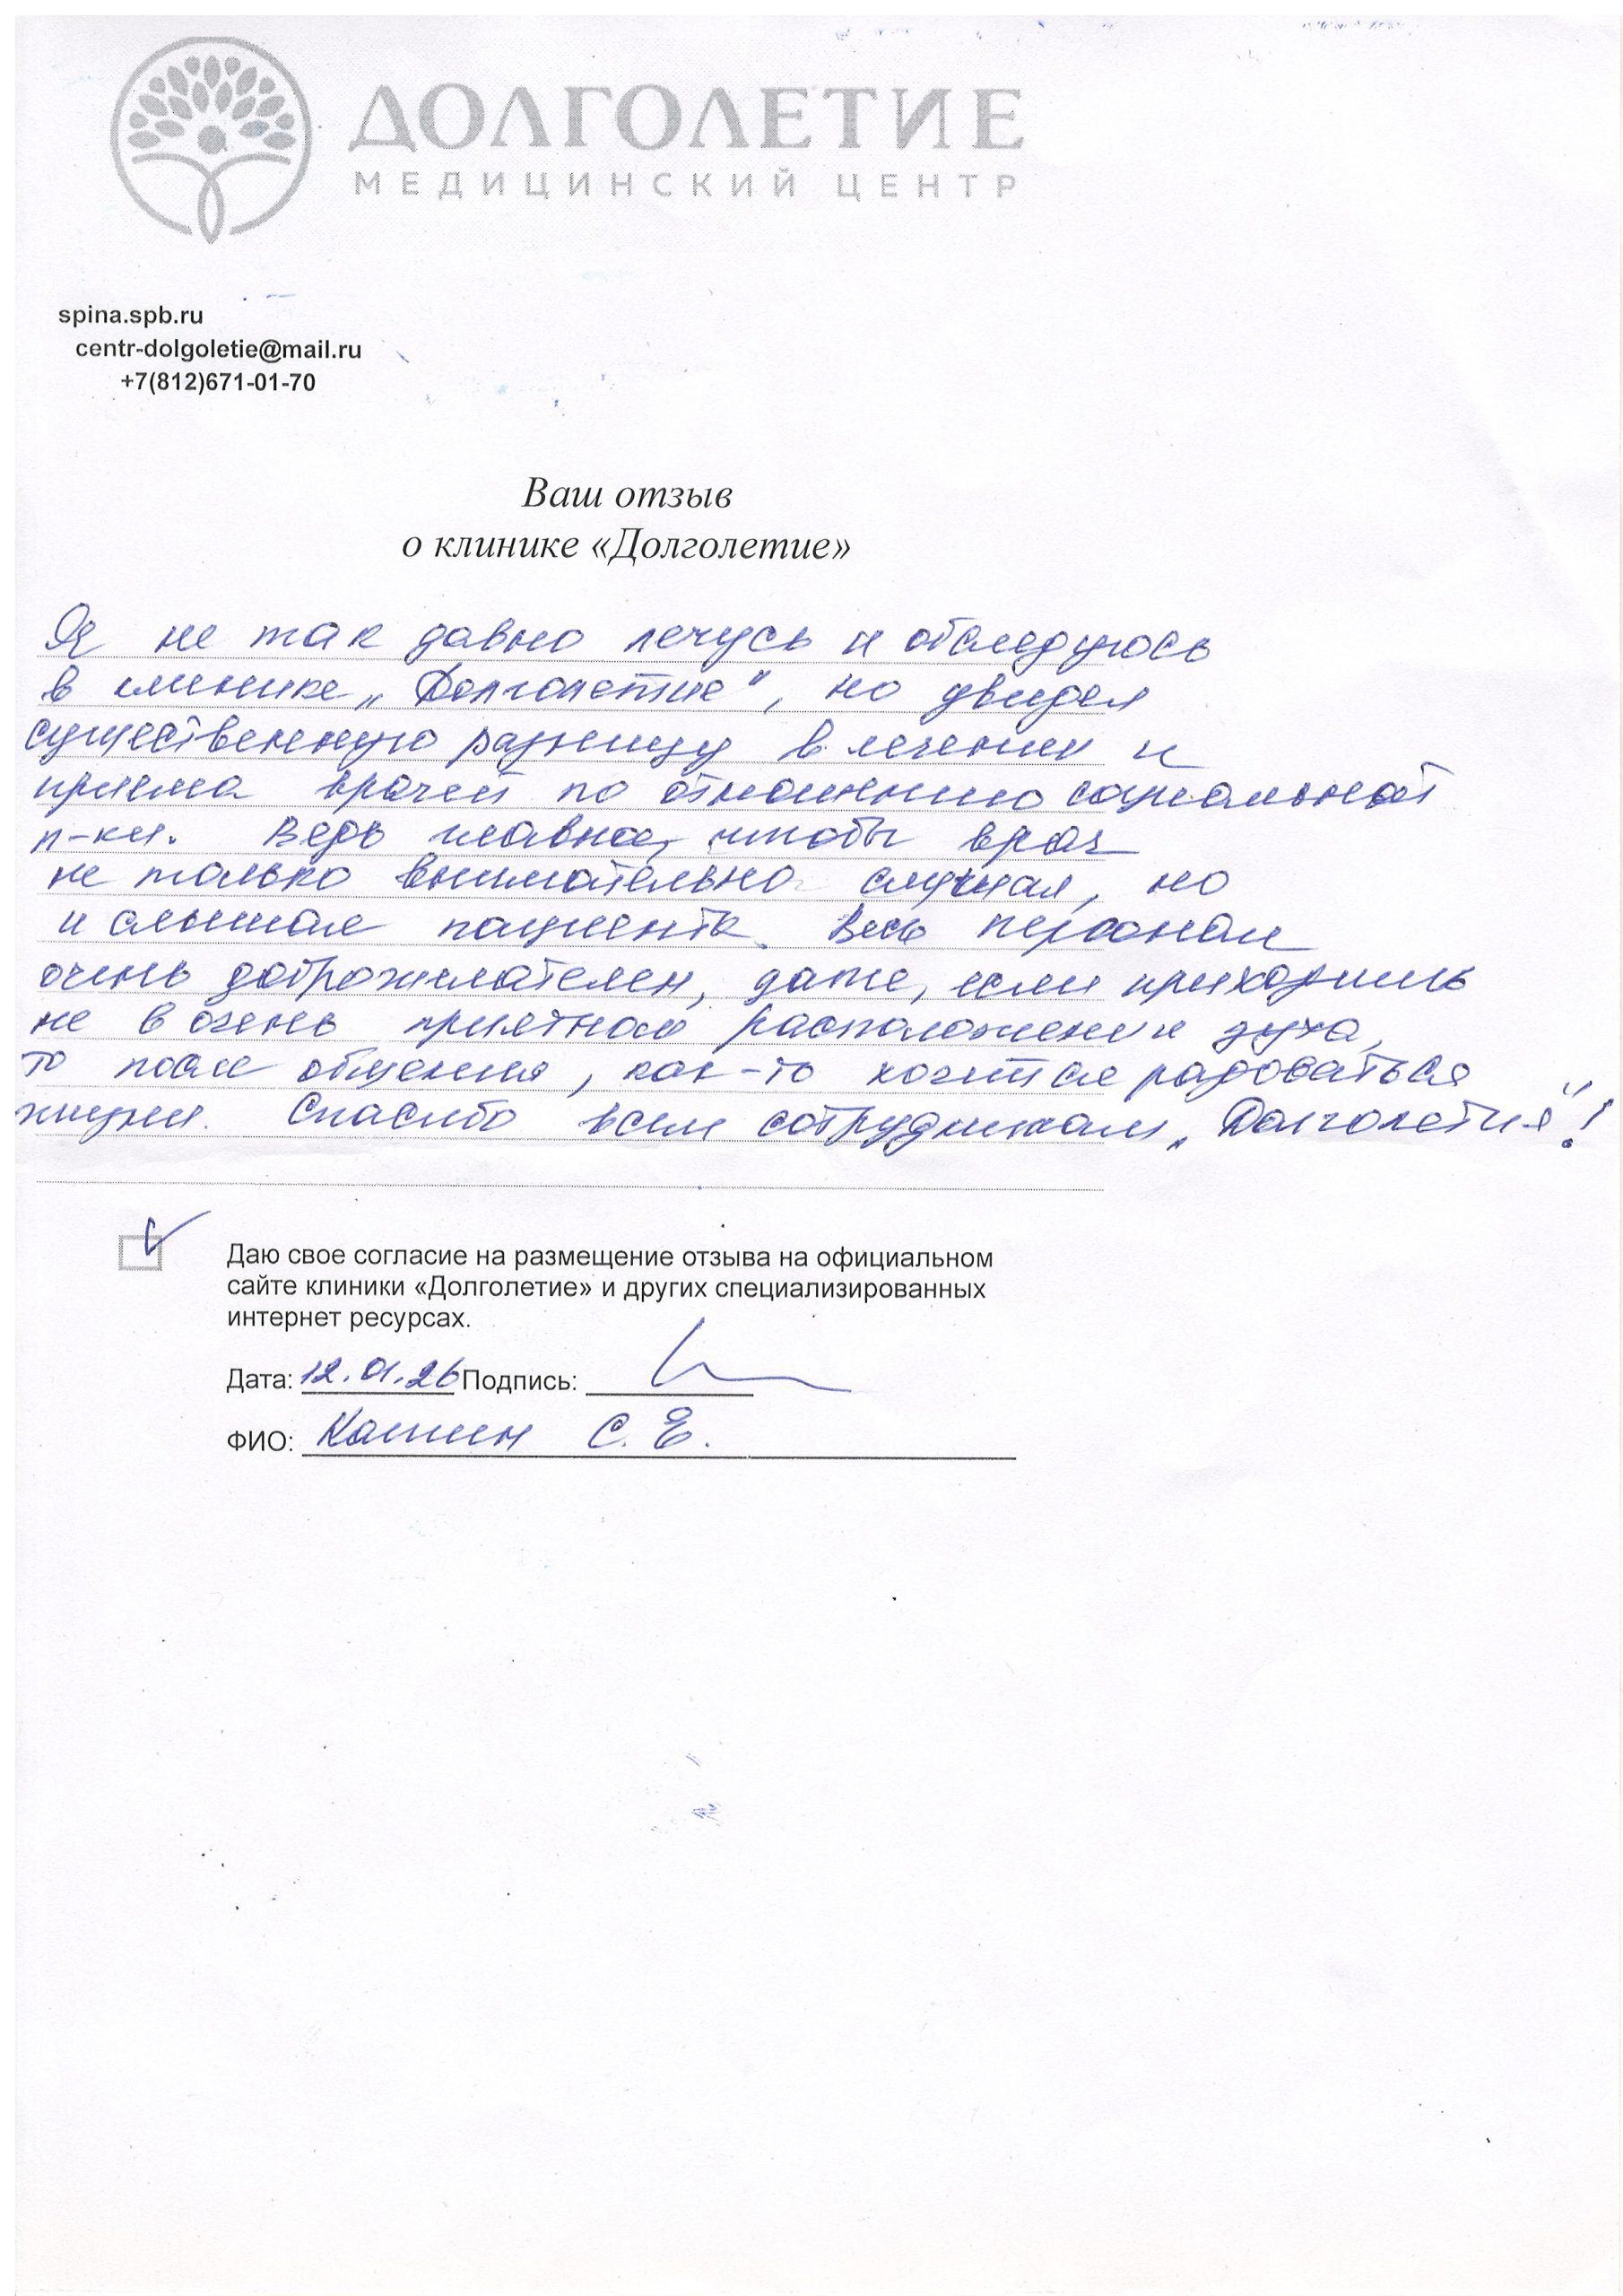 ДОЛГОЛЕТИЕ
МЕДИЦИНСКИЙ ЦЕНТР
spina.spb.ru
centr-dolgoletie@mail.ru
+7(812)671-01-70
Ваш отзыв
о клинике «Долголетие»
Я не так давно лечусь и обследуюсь
в клинике „Долголетие", но увидел
существенную разницу в лечении и
приема врачей по отношению социальной
п-ки. Ведь главное, чтобы врач
не только внимательно слушал, но
и слышал пациента. Весь персонал
очень доброжелателен, даже, если приходишь
не в очень приятном расположении духа,
то после общения, как-то хочется радоваться
жизни. Спасибо всем сотрудникам „Долголетия"!
Даю свое согласие на размещение отзыва на официальном
сайте клиники «Долголетие» и других специализированных
интернет ресурсах.
Дата: 12.01.26 Подпись:
ФИО: Кашин С. Е.